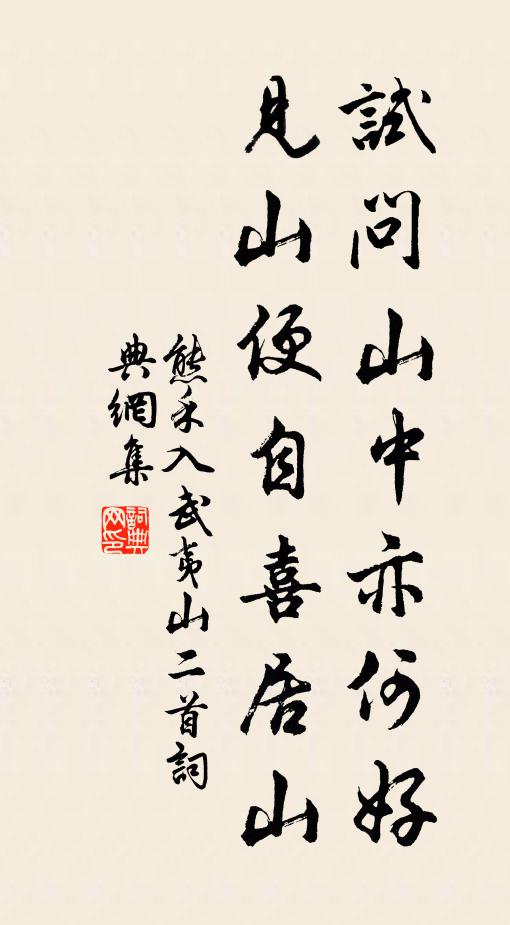 試問山中亦何好
見山便自喜居山
熊禾入武夷山二首詞
典網集
詞典網印